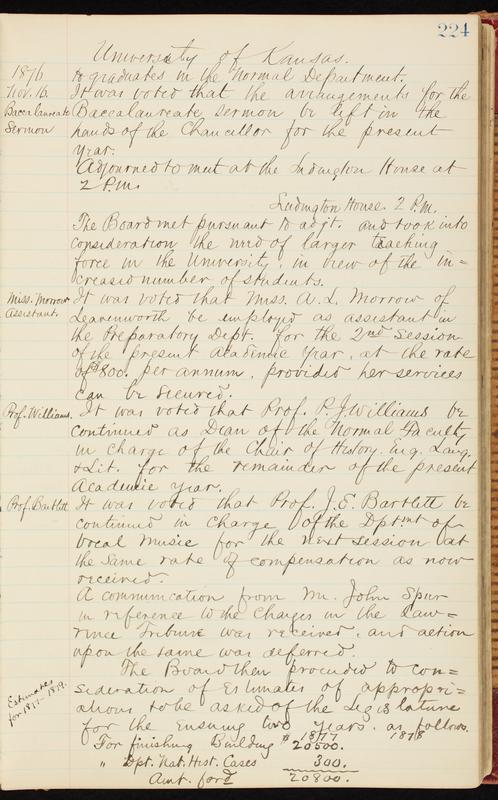 224
University of Kansas.
1876
Nov. 16
to graduates in the Normal Department.
It was voted that the arrangements for the
Baccalaureate
Sermon
Baccalaureate sermon be left in the
hands of the Chancellor for the present
year.
Adjourned to meet at the Ludington House at
2 P.M.
Ludington House. 2 P.M.
The Board met pursuant to adjt. and took into
consideration the need of larger teaching
force in the University, in view of the in=
creased number of students.
Miss. Morrow
Assistant.
It was voted that Miss. A. L. Morrow of
Leavenworth be employed as assistant in
the Preparatory Dept. for the 2nd Session
of the present Academic Year, at the rate
of $800. per annum, provided her services
can be secured.
Prof. Williams.
It was voted that Prof. P. J. Williams be
continued as Dean of the Normal Faculty
in charge of the Chair of History. Eng. Lang.
& Lit. for the remainder of the present
Academic year.
Prof. Bartlett
It was voted that Prof. J. E. Bartlett be
continued in charge of the Dptmt of
Vocal Music for the next session at
the same rate of compensation as now
received.
A communication from Mr. John Spur
in reference to the charges in the Law=
rence Tribune was received, and action
upon the same was deferred.
Estimates
for 1877-1878.
The Board then proceeded to con=
sideration of Estimates of appropri=
ations to be asked of the Legislature
for the ensuing two years. as follows.
1877 1878
For finishing Building $ 20500.
" Dpt. Nat. Hist. Cases 300.
Amt. ford 20800.